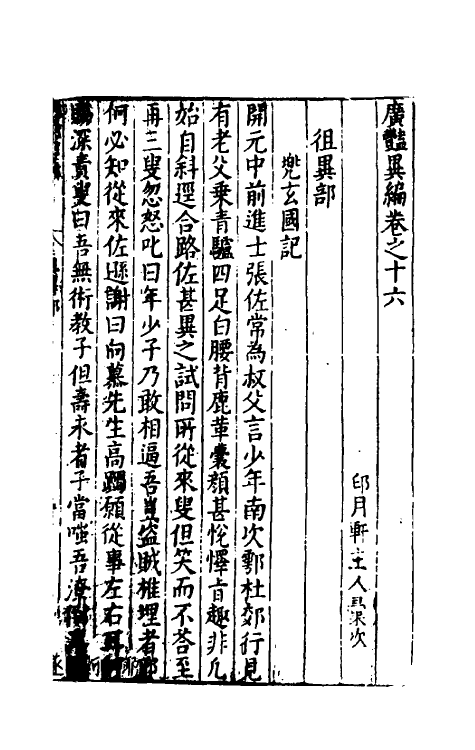 廣豔異編卷之十六
印月軒主人彙次
徂異部
兠玄國記
開元中前進士張佐常為叔父言少年南次鄠杜郊行見
有老父乗青驢四足白腰背鹿革囊顏甚恱懌㫖趣非凡
始自斜逕合路佐甚異之試問所從來叟但笑而不荅至
再三叟忽怒叱曰年少子乃敢相逼吾豈盗賊椎埋者耶
何必知從來佐遜謝曰向慕先生高躅願從事左右耳何
深責叟曰吾無術教子但壽永者子當嗤吾潦